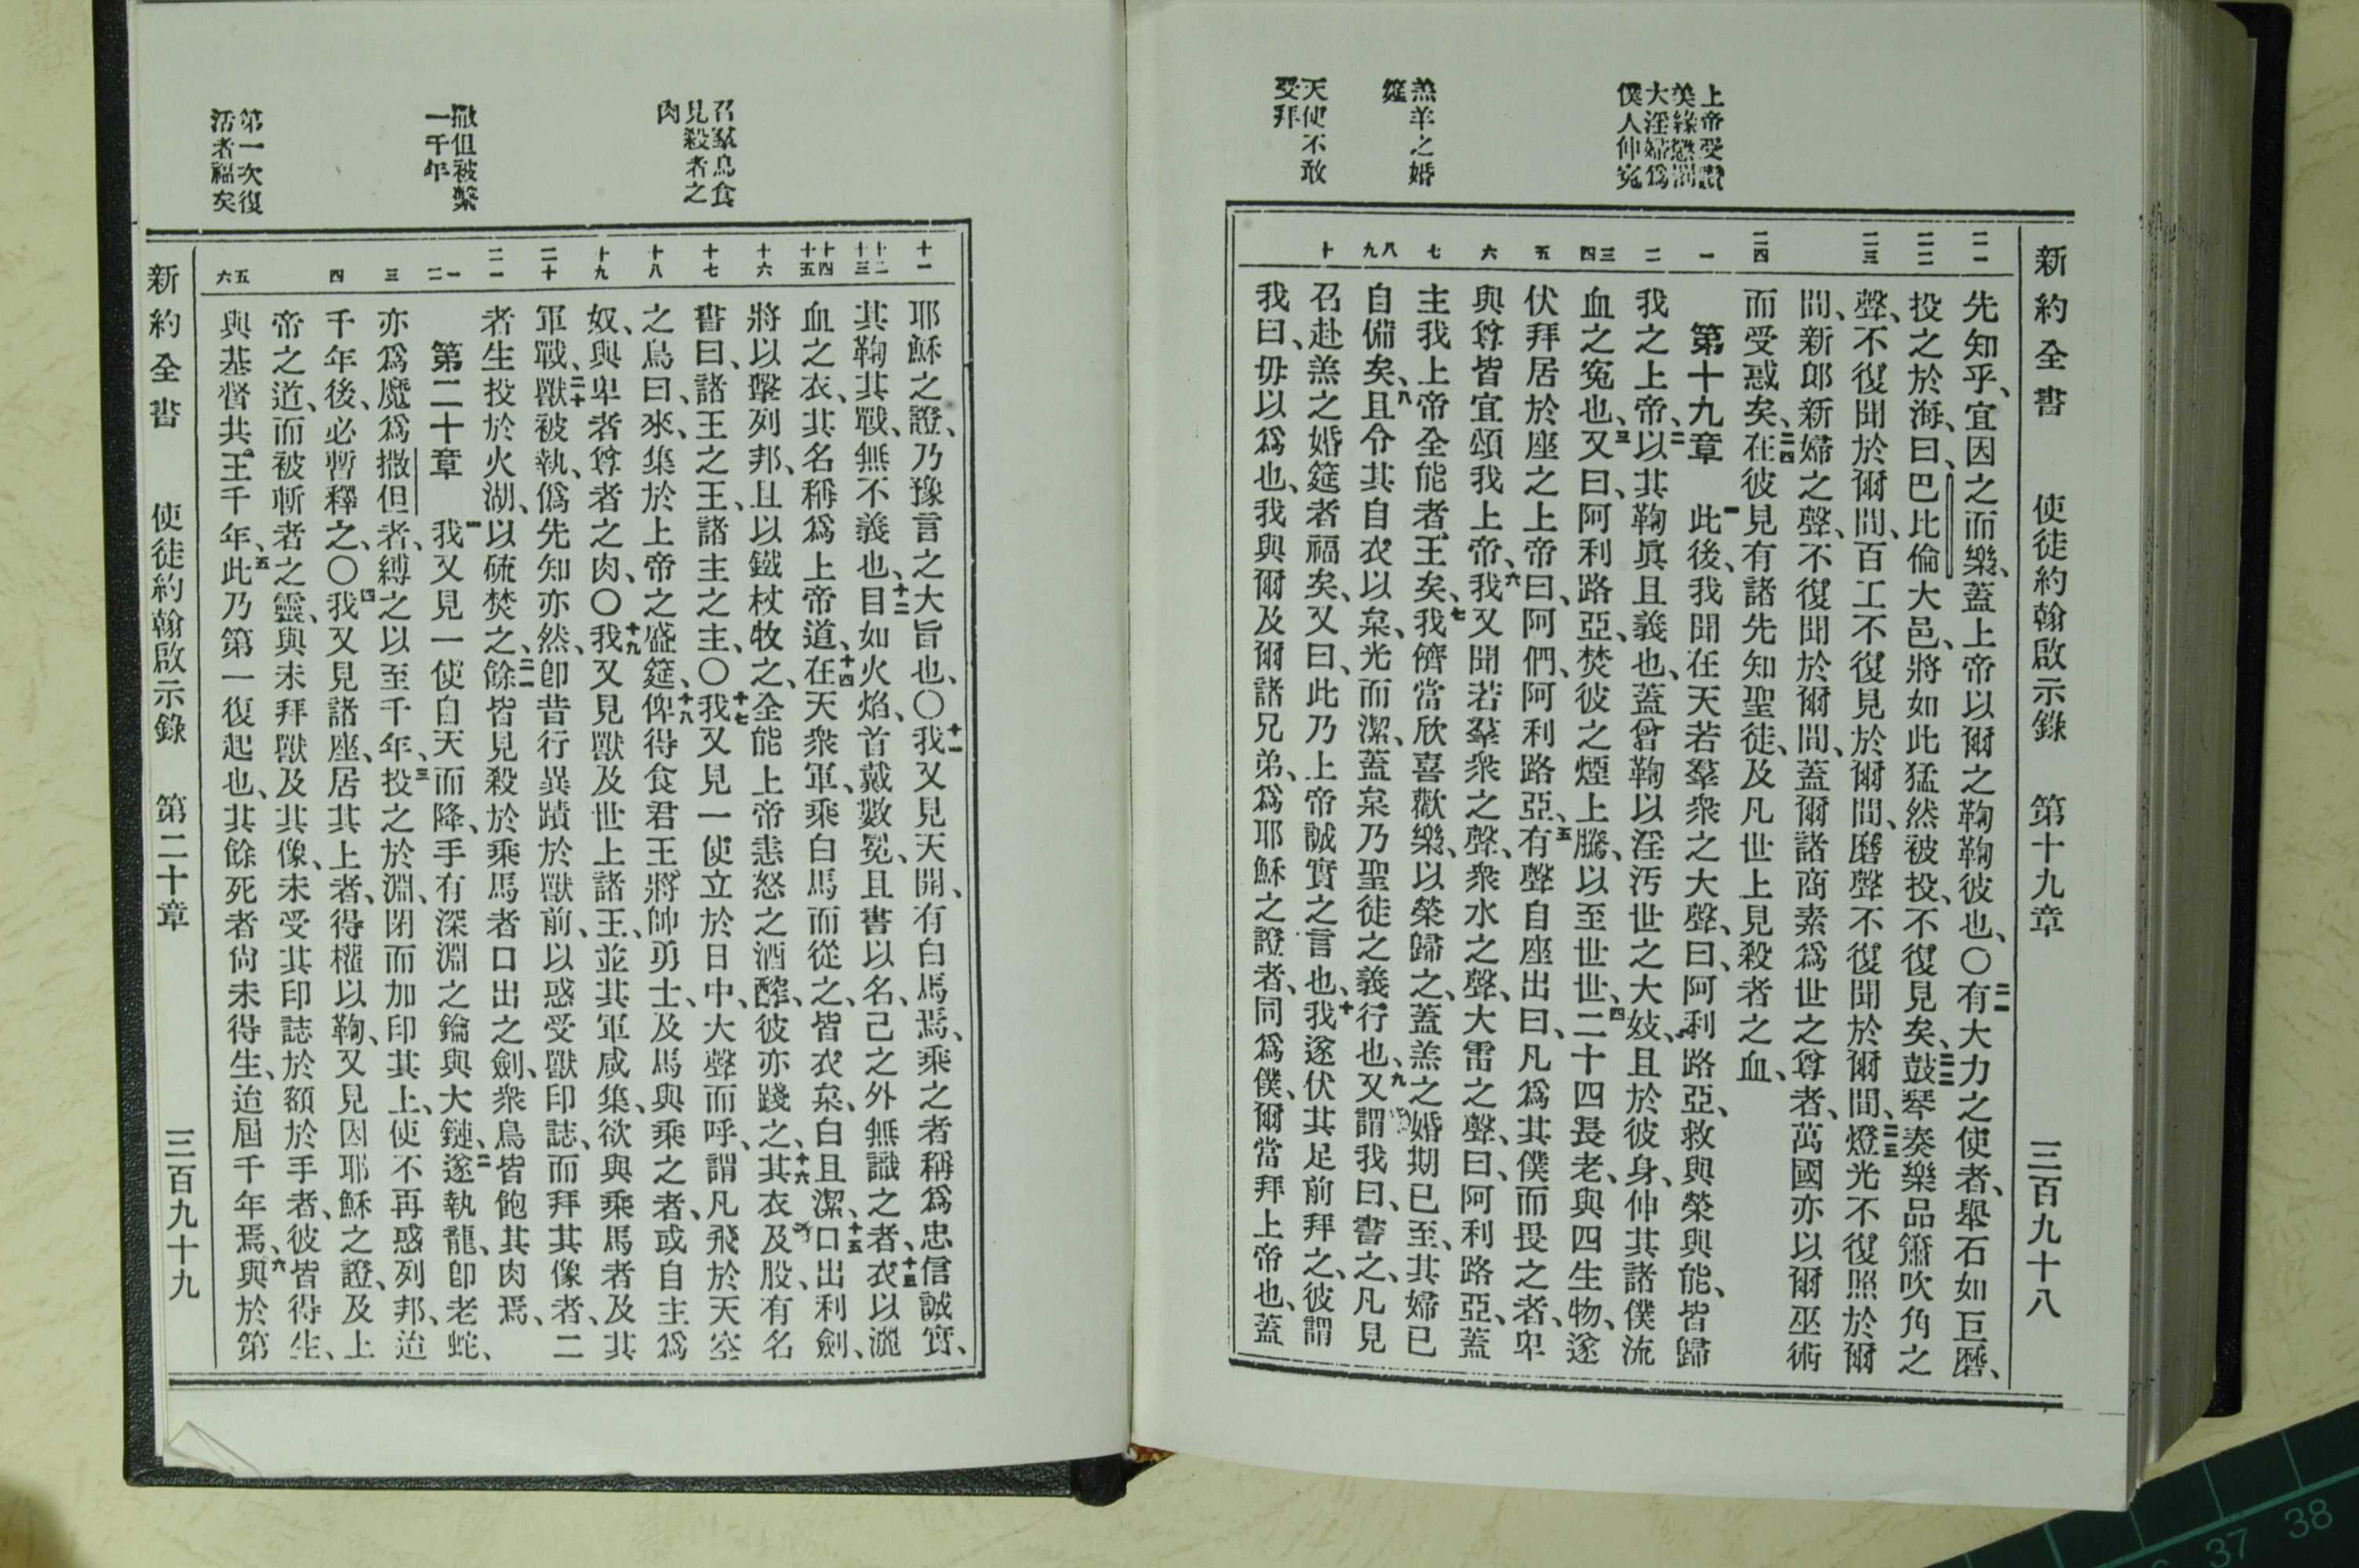 上帝受讚
美緣懲罰
大淫婦爲
僕人伸寃
羔羊之婚
筵
天使不敢
受拜
新約全書 使徒約翰啟示錄 第十九章 三百九十八
二一
先知乎、宜因之而樂、蓋上帝以爾之鞫鞫彼也、〇二一有大力之使者、舉石如巨磨、
二二
投之於海、曰、巴比倫大邑、將如此猛然被投、不復見矣、二二鼓琴奏樂品簫吹角之
二三
聲、不復聞於爾間、百工不復見於爾間、磨聲不復聞於爾間、二三燈光不復照於爾
間、新郎新婦之聲、不復聞於爾間、蓋爾諸商素爲世之尊者、萬國亦以爾巫術
二四
而受惑矣、二四在彼見有諸先知聖徒、及凡世上見殺者之血、
一
第十九章 一此後、我聞在天若羣衆之大聲、曰、阿利路亞、救與榮與能、皆歸
二
我之上帝、二以其鞫眞且義也、蓋曾鞫以淫汚世之大妓、且於彼身、伸其諸僕流
三四
血之寃也、三又曰、阿利路亞、焚彼之煙上騰、以至世世、四二十四長老、與四生物、遂
五
伏拜居於座之上帝曰、阿們、阿利路亞、五有聲自座出曰、凡爲其僕而畏之者、卑
六
與尊皆宜頌我上帝、六我又聞若羣衆之聲、衆水之聲、大雷之聲、曰、阿利路亞、蓋
七
主我上帝全能者、王矣、七我儕當欣喜歡樂、以榮歸之、蓋羔之婚期已至、其婦已
八九
自備矣、八且令其自衣以枲、光而潔、蓋枲乃聖徒之義行也、九又謂我曰、書之、凡見
十
召赴羔之婚筵者福矣、又曰、此乃上帝誠實之言也、十我遂伏其足前拜之、彼謂
我曰、毋以爲也、我與爾及爾諸兄弟、爲耶穌之證者、同爲僕、爾當拜上帝也、蓋
召羣鳥食
見殺者之
肉
撒但被繫
一千年
第一次復
活者福矣
十一
耶穌之證、乃豫言之大旨也、〇十一我又見天開、有白馬焉、乘之者稱爲忠信誠實、
十二十三
其鞫其戰、無不義也、十二目如火焰、首戴數冕、且書以名、己之外無識之者、十三衣以灑
十四十五
血之衣、其名稱爲上帝道、十四在天衆軍、乘白馬而從之、皆衣枲、白且潔、十五口出利劍、
十六
將以擊列邦、且以鐵杖牧之、全能上帝恚怒之酒醡、彼亦踐之、十六其衣及股、有名
十七
書曰、諸王之王、諸主之主、〇十七我又見一使立於日中、大聲而呼、謂凡飛於天空
十八
之鳥曰、來、集於上帝之盛筵、十八俾得食君王將帥勇士、及馬與乘之者、或自主爲
十九
奴、與卑者尊者之肉、〇十九我又見獸及世上諸王、並其軍咸集、欲與乘馬者及其
二十
軍戰、二十獸被執、僞先知亦然、卽昔行異蹟於獸前、以惑受獸印誌、而拜其像者、二
二一
者生投於火湖、以硫焚之、二一餘皆見殺於乘馬者口出之劍、衆鳥皆飽其肉焉、
一二
第二十章 一我又見一使自天而降、手有深淵之鑰與大鏈、二遂執龍、卽老蛇、
三
亦爲魔爲撒但者、縛之以至千年、三投之於淵、閉而加印其上、使不再惑列邦、迨
四
千年後、必暫釋之、〇四我又見諸座、居其上者、得權以鞫、又見因耶穌之證、及上
帝之道、而被斬者之靈、與未拜獸及其像、未受其印誌於額於手者、彼皆得生、
五六
與基督共王千年、五此乃第一復起也、其餘死者尙未得生、迨屆千年焉、六與於第
新約全書 使徒約翰啟示錄 第二十章 三百九十九
37 38